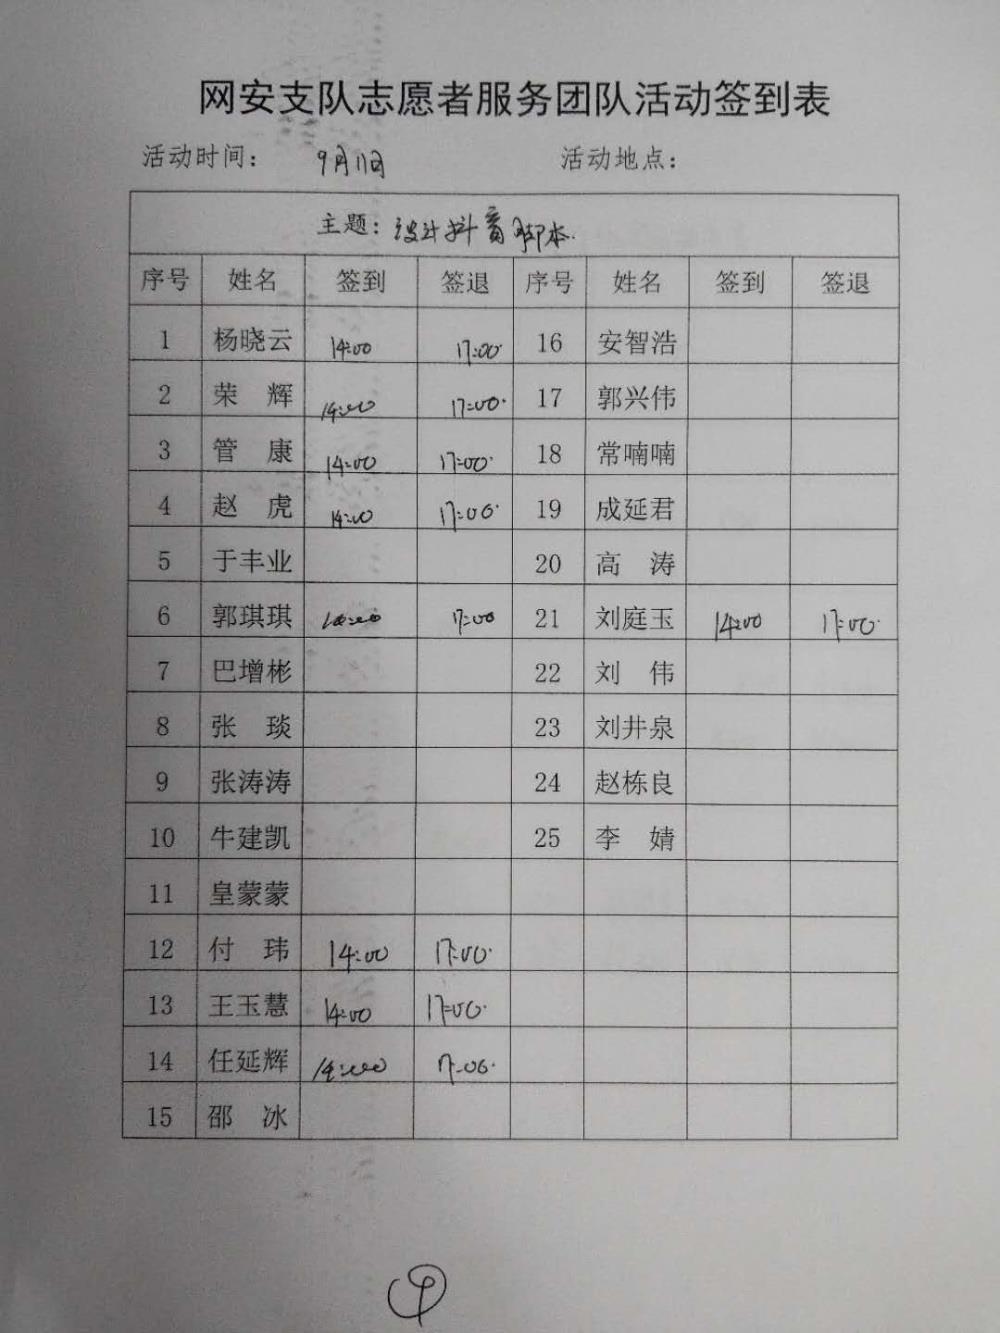 网安支队志愿者服务团队活动签到表
活动时间： 9月11日 活动地点：
主题：设计抖音脚本.
序号 姓名 签到 签退 序号 姓名 签到 签退
1 杨晓云 14:00 17:00 16 安智浩
2 荣 辉 14:00 17:00 17 郭兴伟
3 管 康 14:00 17:00 18 常喃喃
4 赵 虎 14:00 17:00 19 成延君
5 于丰业 20 高 涛
6 郭琪琪 14:00 17:00 21 刘庭玉 14:00 17:00
7 巴增彬 22 刘 伟
8 张 琰 23 刘井泉
9 张涛涛 24 赵栋良
10 牛建凯 25 李 婧
11 皇蒙蒙
12 付 玮 14:00 17:00
13 王玉慧 14:00 17:00
14 任延辉 14:00 17:00
15 邵 冰